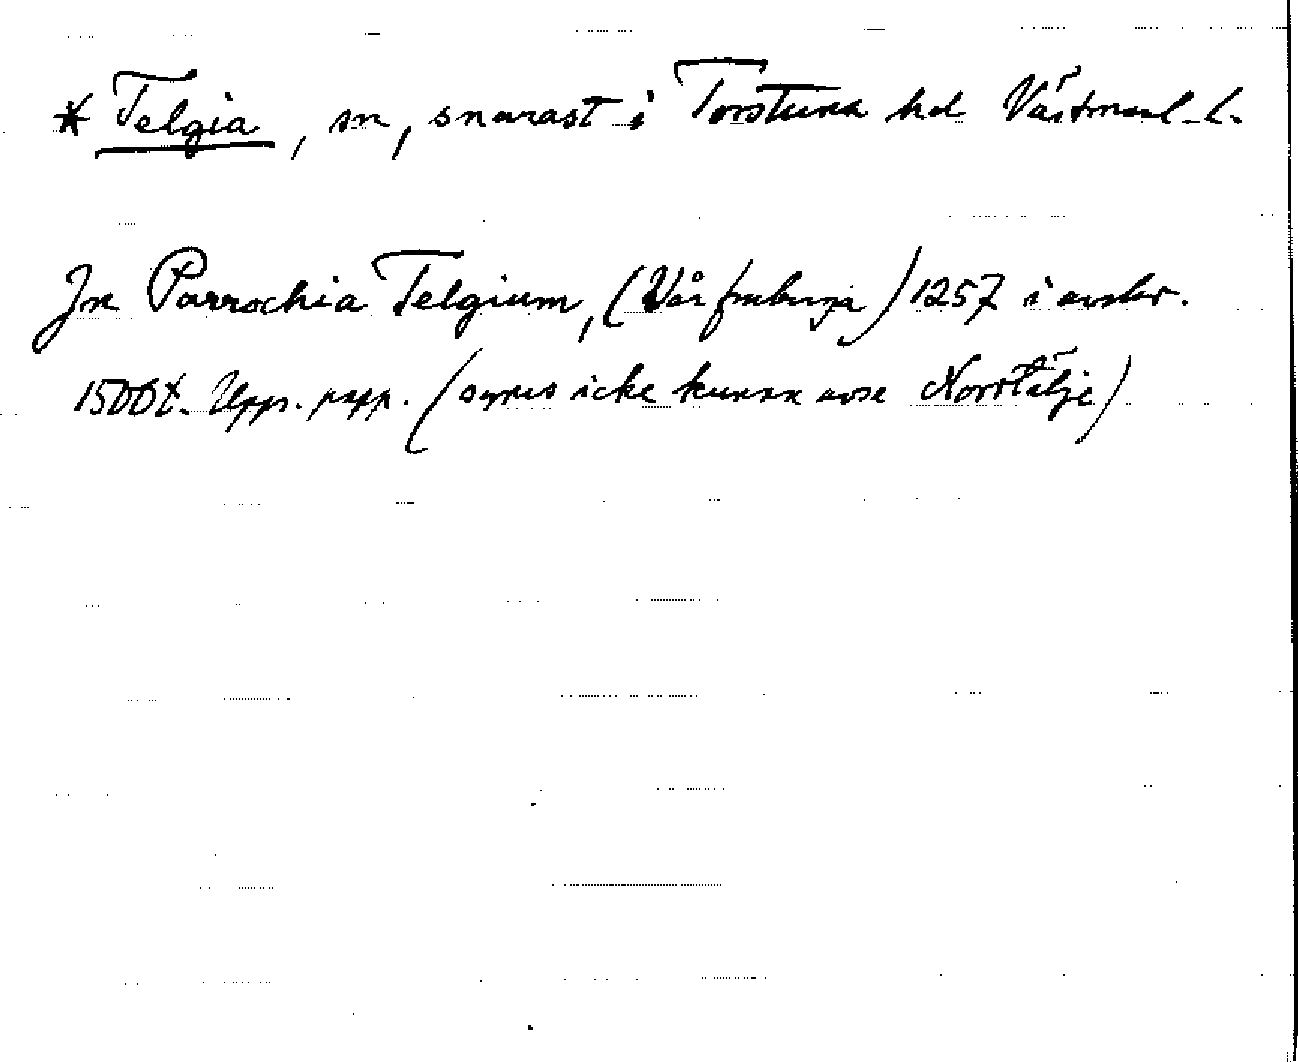 * Telgia, sn, snarast i Torstuna hd Västmanl. l.
Jn Parrochia Telgium, (Vårfrukyrja) 1257 i avskr.
1500t. Upps. papp. (synes icke kunna avse Norrtälje)